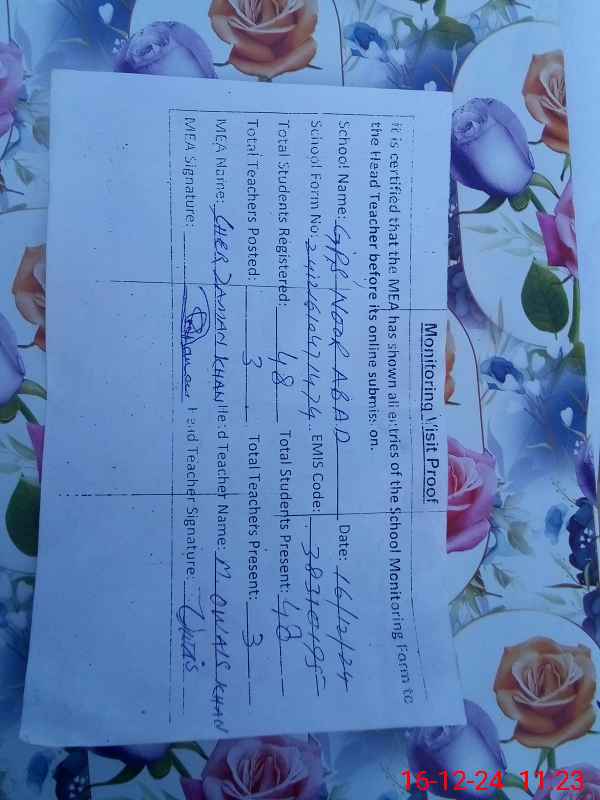 Monitoring Visit Proof
It is certified that the MEA has shown all entries of the School Monitoring Form to
the Head Teacher before its online submission.
School Name: GPS NOOR ABAD Date: 16/12/24
School Form No: EMIS Code:
Total Students Registered: 48 Total Students Present: 48
Total Teachers Posted: 3 Total Teachers Present: 3
MEA Name: SHER ZAMAN KHAN Head Teacher Name: M. OWAIS KHAN
MEA Signature: Head Teacher Signature: Owais
16-12-24 11:23